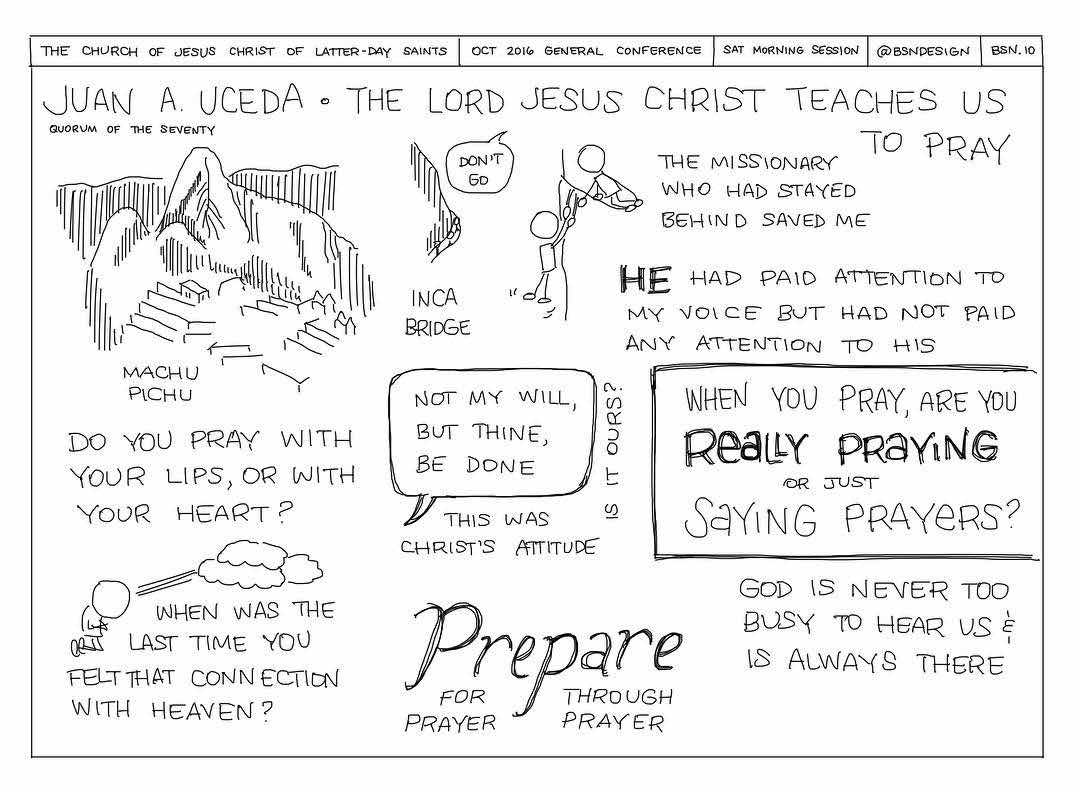 THE CHURCH OF JESUS CHRIST OF LATTER-DAY SAINTS
OCT 2016 GENERAL CONFERENCE
SAT MORNING SESSION
@BSNDESIGN
BSN.10
JUAN A. UCEDA • THE LORD JESUS CHRIST TEACHES US
TO PRAY
QUORUM OF THE SEVENTY
MACHU
PICHU
DON'T
GO
INCA
BRIDGE
THE MISSIONARY
WHO HAD STAYED
BEHIND SAVED ME
HE HAD PAID ATTENTION TO
MY VOICE BUT HAD NOT PAID
ANY ATTENTION TO HIS
DO YOU PRAY WITH
YOUR LIPS, OR WITH
YOUR HEART?
NOT MY WILL,
BUT THINE,
BE DONE
THIS WAS
CHRIST'S ATTITUDE
IS IT OURS?
WHEN YOU PRAY, ARE YOU
REALLY PRAYING
OR JUST
SAYING PRAYERS?
WHEN WAS THE
LAST TIME YOU
FELT THAT CONNECTION
WITH HEAVEN?
Prepare
FOR
PRAYER
THROUGH
PRAYER
GOD IS NEVER TOO
BUSY TO HEAR US &
IS ALWAYS THERE